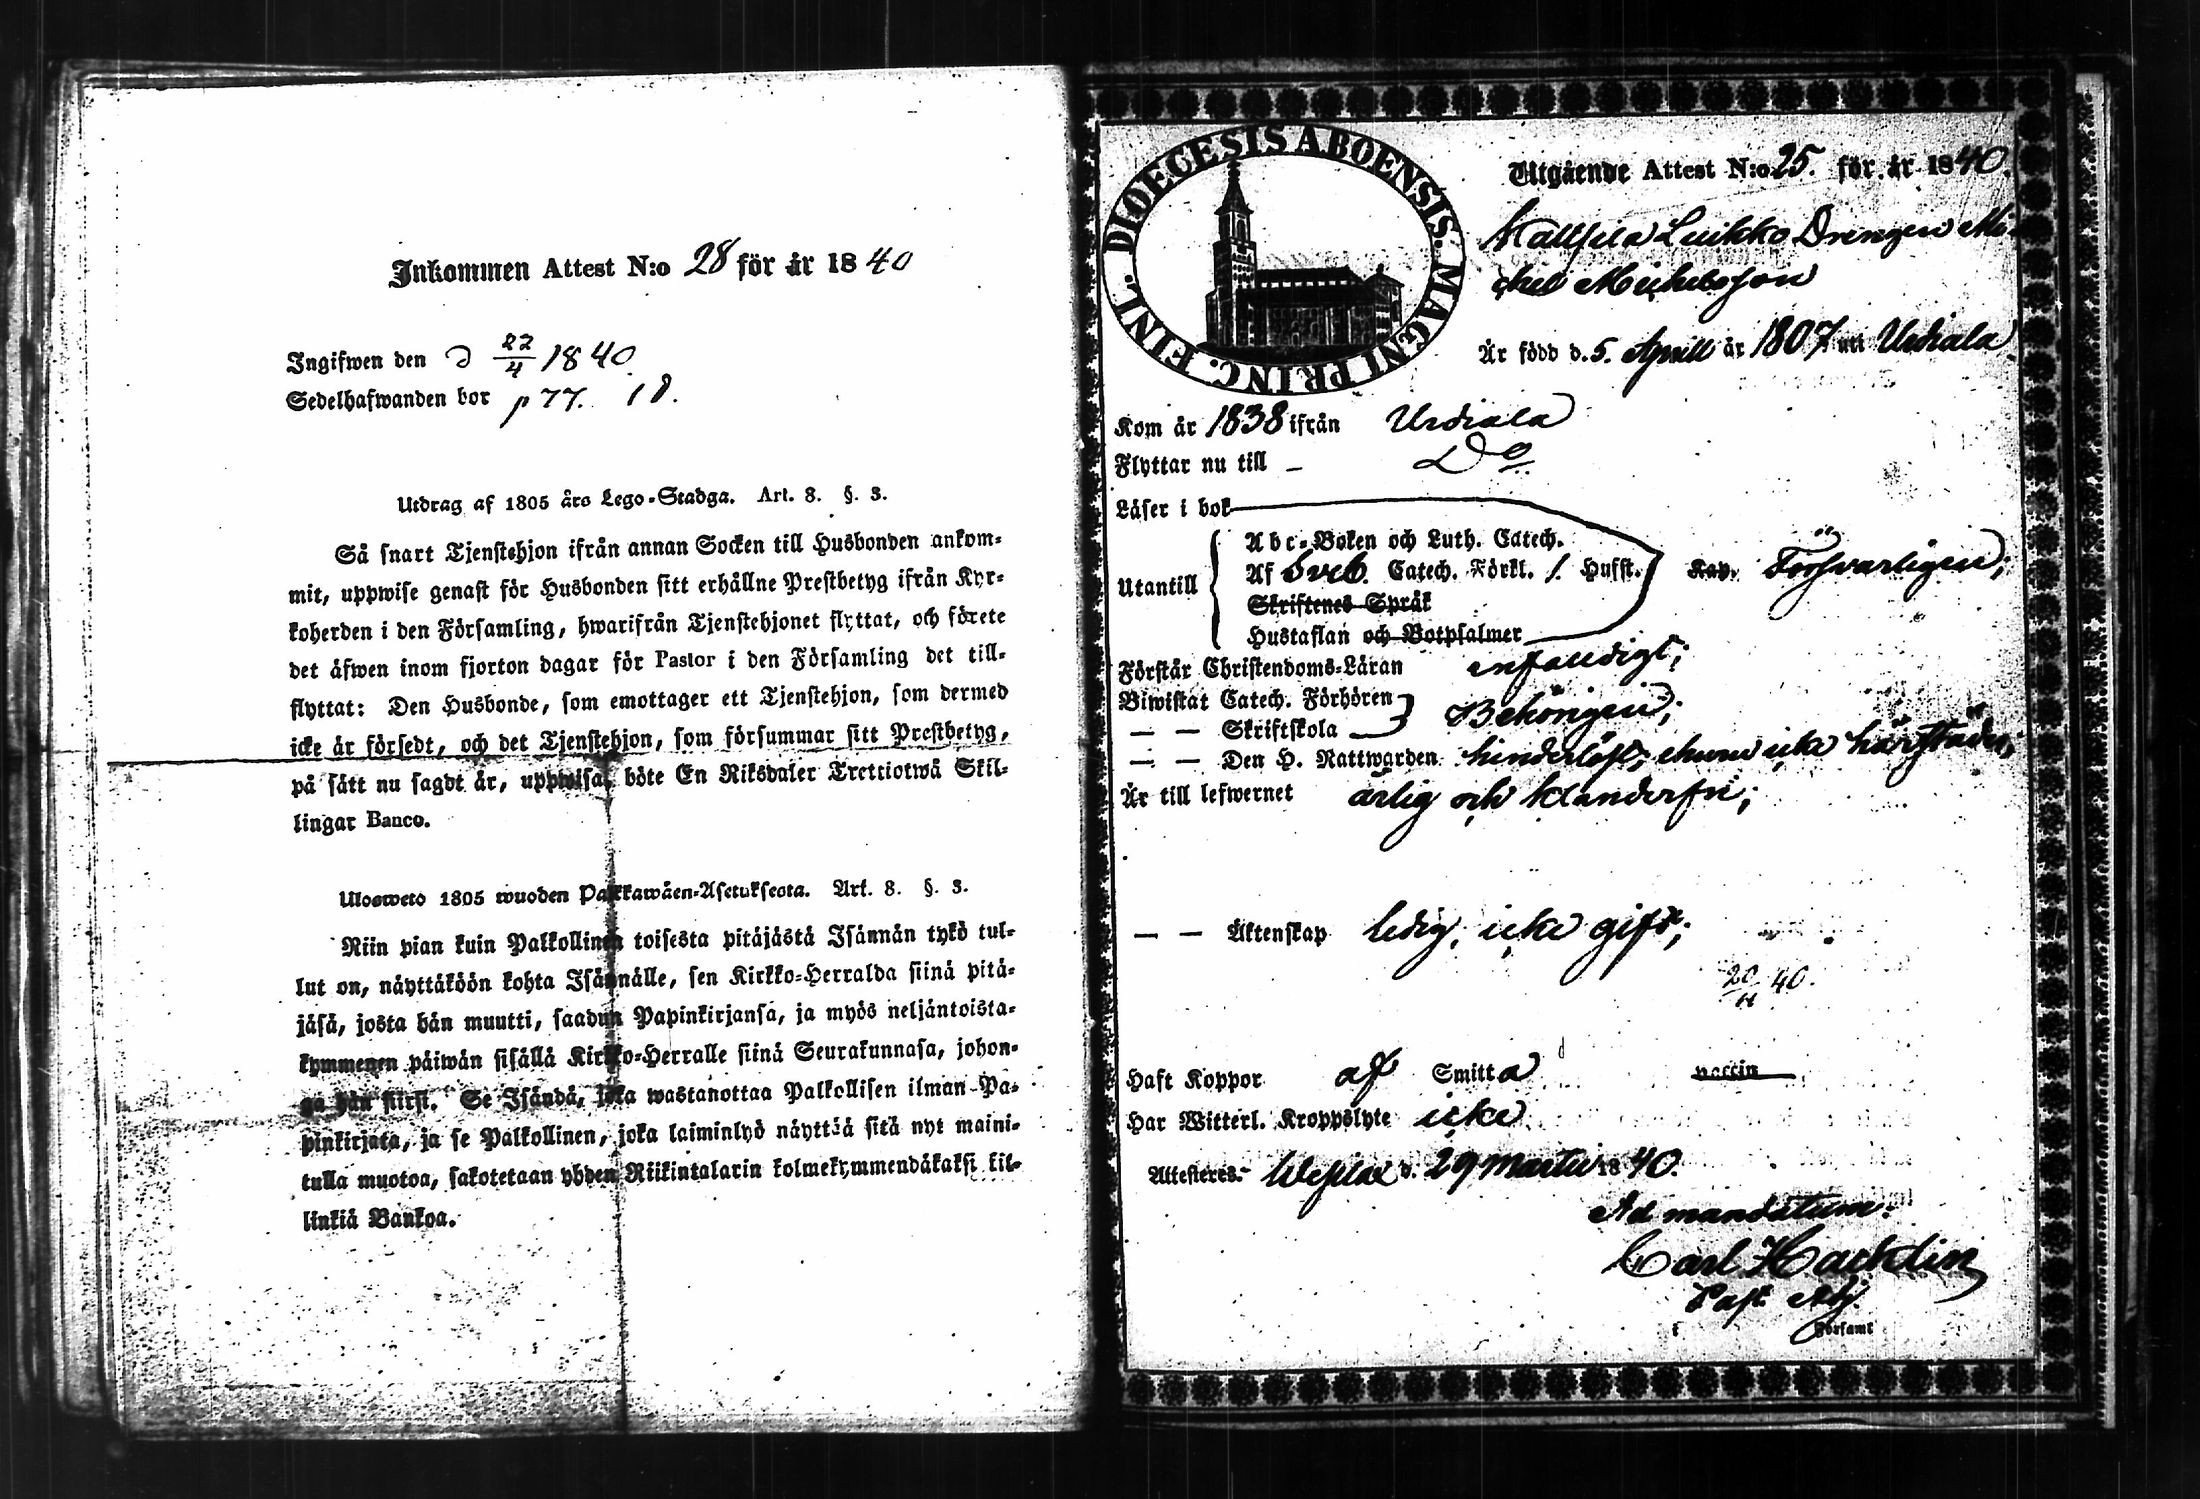 Inkommen Attest N:o 28 för år 1840
Ingifwen den d 22/4 1840.
Sedelhafwanden bor p 77. 18.
Utdrag af 1805 års Lego-Stadga. Art. 8. §. 3.
Så snart Tjenstehjon ifrån annan Socken till Husbonden ankom-
mit, uppwise genast för Husbonden sitt erhållne Prestbetyg ifrån Kyr-
koherden i den Församling, hwarifrån Tjenstehjonet flyttat, och förete
det äfwen inom fjorton dagar för Pastor i den Församling det till-
flyttat: Den Husbonde, som emottager ett Tjenstehjon, som dermed
icke är försedt, och det Tjenstehjon, som försummar sitt Prestbetyg,
på sätt nu sagdt är, uppwisa, böte En Riksdaler Trettiotwå Skil-
lingar Banco.
Ulosweto 1805 wuoden Palkkawäen-Asetuksesta. Art. 8. §. 3.
Niin pian kuin Palkollinen toisesta pitäjästä Isännän tykö tul-
lut on, näyttäköön kohta Isännälle, sen Kirkko-Herralda siinä pitä-
jäsä, josta hän muutti, saadun Papinkirjansa, ja myös neljäntoista-
kymmenen päiwän sisällä Kirkko-Herralle siinä Seurakunnasa, johon-
ga hän siirsi. Se Isändä, joka wastanottaa Palkollisen ilman Pa-
pinkirjata, ja se Palkollinen, joka laiminlyö näyttää sitä nyt maini-
tulla muotoa, sakotetaan yhden Riikintalarin kolmekymmendäkaksi kil-
linkiä Bankoa.
DIOECESIS ABOENSIS. MAGNI PRINC. FINL.
Utgående Attest N:o 25. för år 1840.
Luikko Drengen Mi-
chel Michelsson
Är född d. 5. Aprill år 1807 uti Urdiala
Kom år 1838 ifrån Urdiala
Flyttar nu till – Do
Läser i bok
Abc-Boken och Luth. Catech.
Utantill Af Sveb. Catech. Förkl. /. Husst. Kap. Försvarligen;
Skriftenes Språk
Hustaflan och Botpsalmer
Förstår Christendoms-Läran enfalldigt;
Biwistat Catech. Förhören
— — Skriftskola Behörigen;
— — Den H. Nattwarden hinderlöst, ehuru icke härstädes;
Är till lefwernet ärlig och klanderfri;
— — Äktenskap ledig, icke gift;
20/11 40.
Haft Koppor af Smitta vaccin
Har Witterl. Kroppslyte icke
Attesteres. d. 29 Martii 1840.
Ad mandatum:
Carl Hacklin
Past. Adj.
i Församl